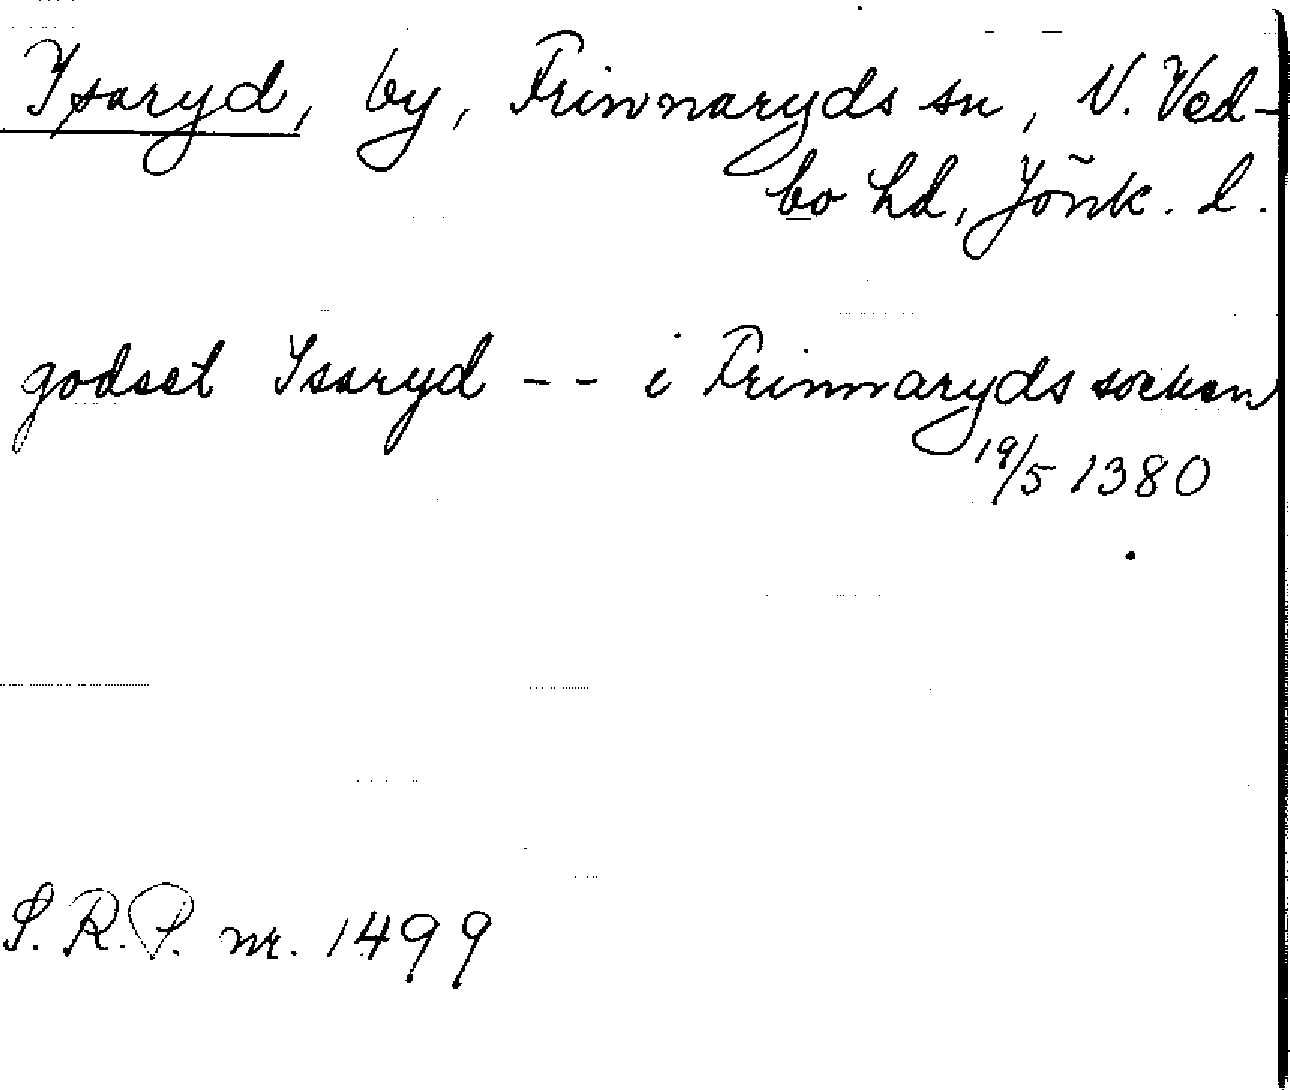 Ysaryd, by, Frinnaryds sn, N. Ved-
bo hd, Jönk. l.
godset Ysaryd -- i Frinnaryds socken
19/5 1380
S.R.P. nr. 1499